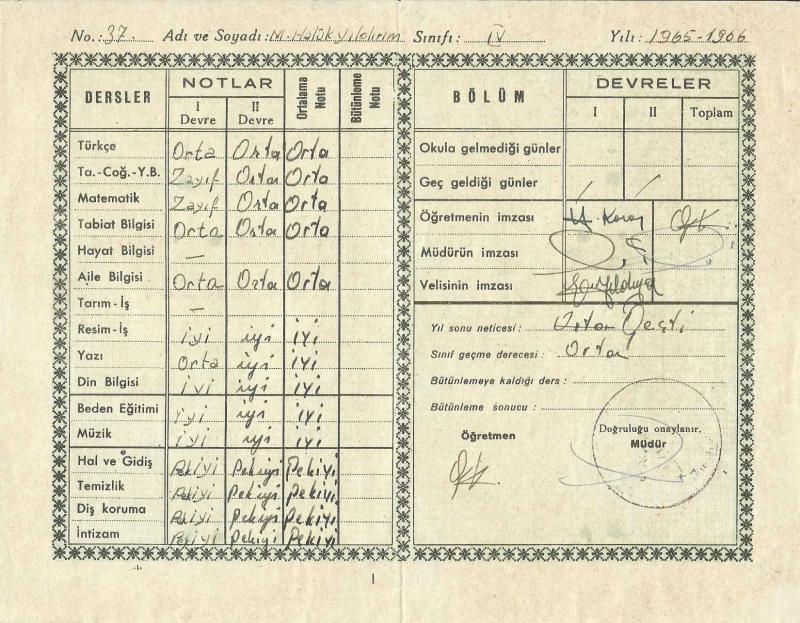 No.: 37. Adı ve Soyadı: M. Halûk Yıldırım Sınıfı: IV Yılı: 1965-1966
DERSLER NOTLAR Ortalama Notu Bütünleme Notu
I Devre II Devre
Türkçe Orta Orta Orta
Ta.-Coğ.-Y.B. Zayıf Orta Orta
Matematik Zayıf Orta Orta
Tabiat Bilgisi Orta Orta Orta
Hayat Bilgisi —
Aile Bilgisi Orta Orta Orta
Tarım-İş —
Resim-İş iyi iyi iyi
Yazı Orta iyi iyi
Din Bilgisi iyi iyi iyi
Beden Eğitimi iyi iyi iyi
Müzik iyi iyi iyi
Hal ve Gidiş Pekiyi Pekiyi Pekiyi
Temizlik Pekiyi Pekiyi Pekiyi
Diş koruma Pekiyi Pekiyi Pekiyi
İntizam Pekiyi Pekiyi Pekiyi
BÖLÜM DEVRELER
I II Toplam
Okula gelmediği günler
Geç geldiği günler / /
Öğretmenin imzası
Müdürün imzası
Velisinin imzası
Yıl sonu neticesi: Orta Geçti
Sınıf geçme derecesi: Orta
Bütünlemeye kaldığı ders:
Bütünleme sonucu:
Öğretmen
Doğruluğu onaylanır.
Müdür
I